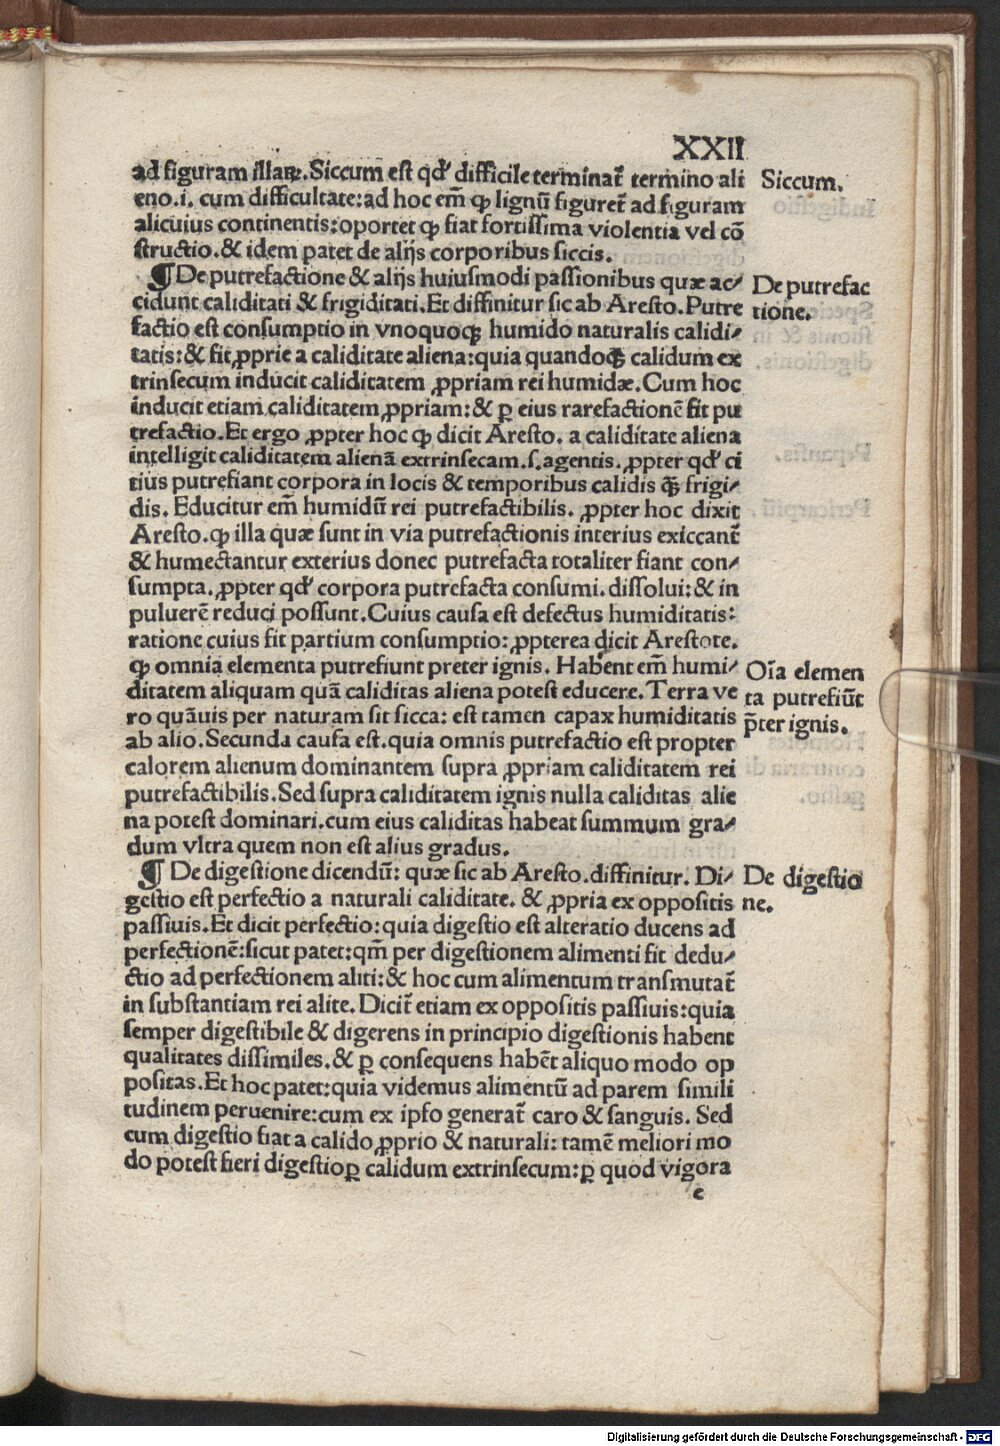 XXII
ad figuram illaꝝ. Siccum est qđ difficile terminat̃ termino ali
eno.i. cum difficultate: ad hoc em̃ ꝙ lignũ figuret̃ ad figuram
alicuius continentis: oportet ꝙ fiat fortissima violentia vel cõ
structio. & idem patet de alijs corporibus siccis.
¶ De putrefactione & alijs huiusmodi passionibus quæ ac⸗
cidunt caliditati & frigiditati. Et diffinitur sic ab Aresto. Putre
factio est consumptio in vnoquoqꝫ humido naturalis calidi⸗
tatis: & fit ꝓprie a caliditate aliena: quia quandoqꝫ calidum ex
trinsecum inducit caliditatem ꝓpriam rei humidæ. Cum hoc
inducit etiam caliditatem ꝓpriam: & ꝑ eius rarefactionẽ fit pu
trefactio. Et ergo ꝓpter hoc ꝙ dicit Aresto. a caliditate aliena
intelligit caliditatem alienã extrinsecam.s.agentis. ꝓpter qđ ci
tius putrefiant corpora in locis & temporibus calidis q̃ꝫ frigi⸗
dis. Educitur em̃ humidũ rei putrefactibilis. ꝓpter hoc dixit
Aresto. ꝙ illa quæ sunt in via putrefactionis interius exiccant̃
& humectantur exterius donec putrefacta totaliter fiant con⸗
sumpta. ꝓpter qđ corpora putrefacta consumi. dissolui: & in
puluerẽ reduci possunt. Cuius causa est defectus humiditatis:
ratione cuius fit partium consumptio: ꝓpterea dicit Arestote.
ꝙ omnia elementa putrefiunt preter ignis. Habent em̃ humi⸗
ditatem aliquam quã caliditas aliena potest educere. Terra ve
ro quãuis per naturam sit sicca: est tamen capax humiditatis
ab alio. Secunda causa est. quia omnis putrefactio est propter
calorem alienum dominantem supra ꝓpriam caliditatem rei
putrefactibilis. Sed supra caliditatem ignis nulla caliditas alie
na potest dominari. cum eius caliditas habeat summum gra⸗
dum vltra quem non est alius gradus.
¶ De digestione dicendũ: quæ sic ab Aresto. diffinitur. Di⸗
gestio est perfectio a naturali caliditate. & ꝓpria ex oppositis
passiuis. Et dicit perfectio: quia digestio est alteratio ducens ad
perfectionẽ: sicut patet: qm̃ per digestionem alimenti fit dedu⸗
ctio ad perfectionem aliti: & hoc cum alimentum transmutat̃
in substantiam rei alite. Dicit̃ etiam ex oppositis passiuis: quia
semper digestibile & digerens in principio digestionis habent
qualitates dissimiles. & ꝑ consequens habẽt aliquo modo op
positas. Et hoc patet: quia videmus alimentũ ad parem simili
tudinem peruenire: cum ex ipso generat̃ caro & sanguis. Sed
cum digestio fiat a calido ꝓprio & naturali: tamẽ meliori mo
do potest fieri digestio ꝑ calidum extrinsecum: ꝑ quod vigora
c
Siccum.
De putrefac
tione.
Oĩa elemen
ta putrefiũt
p̃ter ignis.
De digestio
ne.
Digitalisierung gefördert durch die Deutsche Forschungsgemeinschaft - DFG